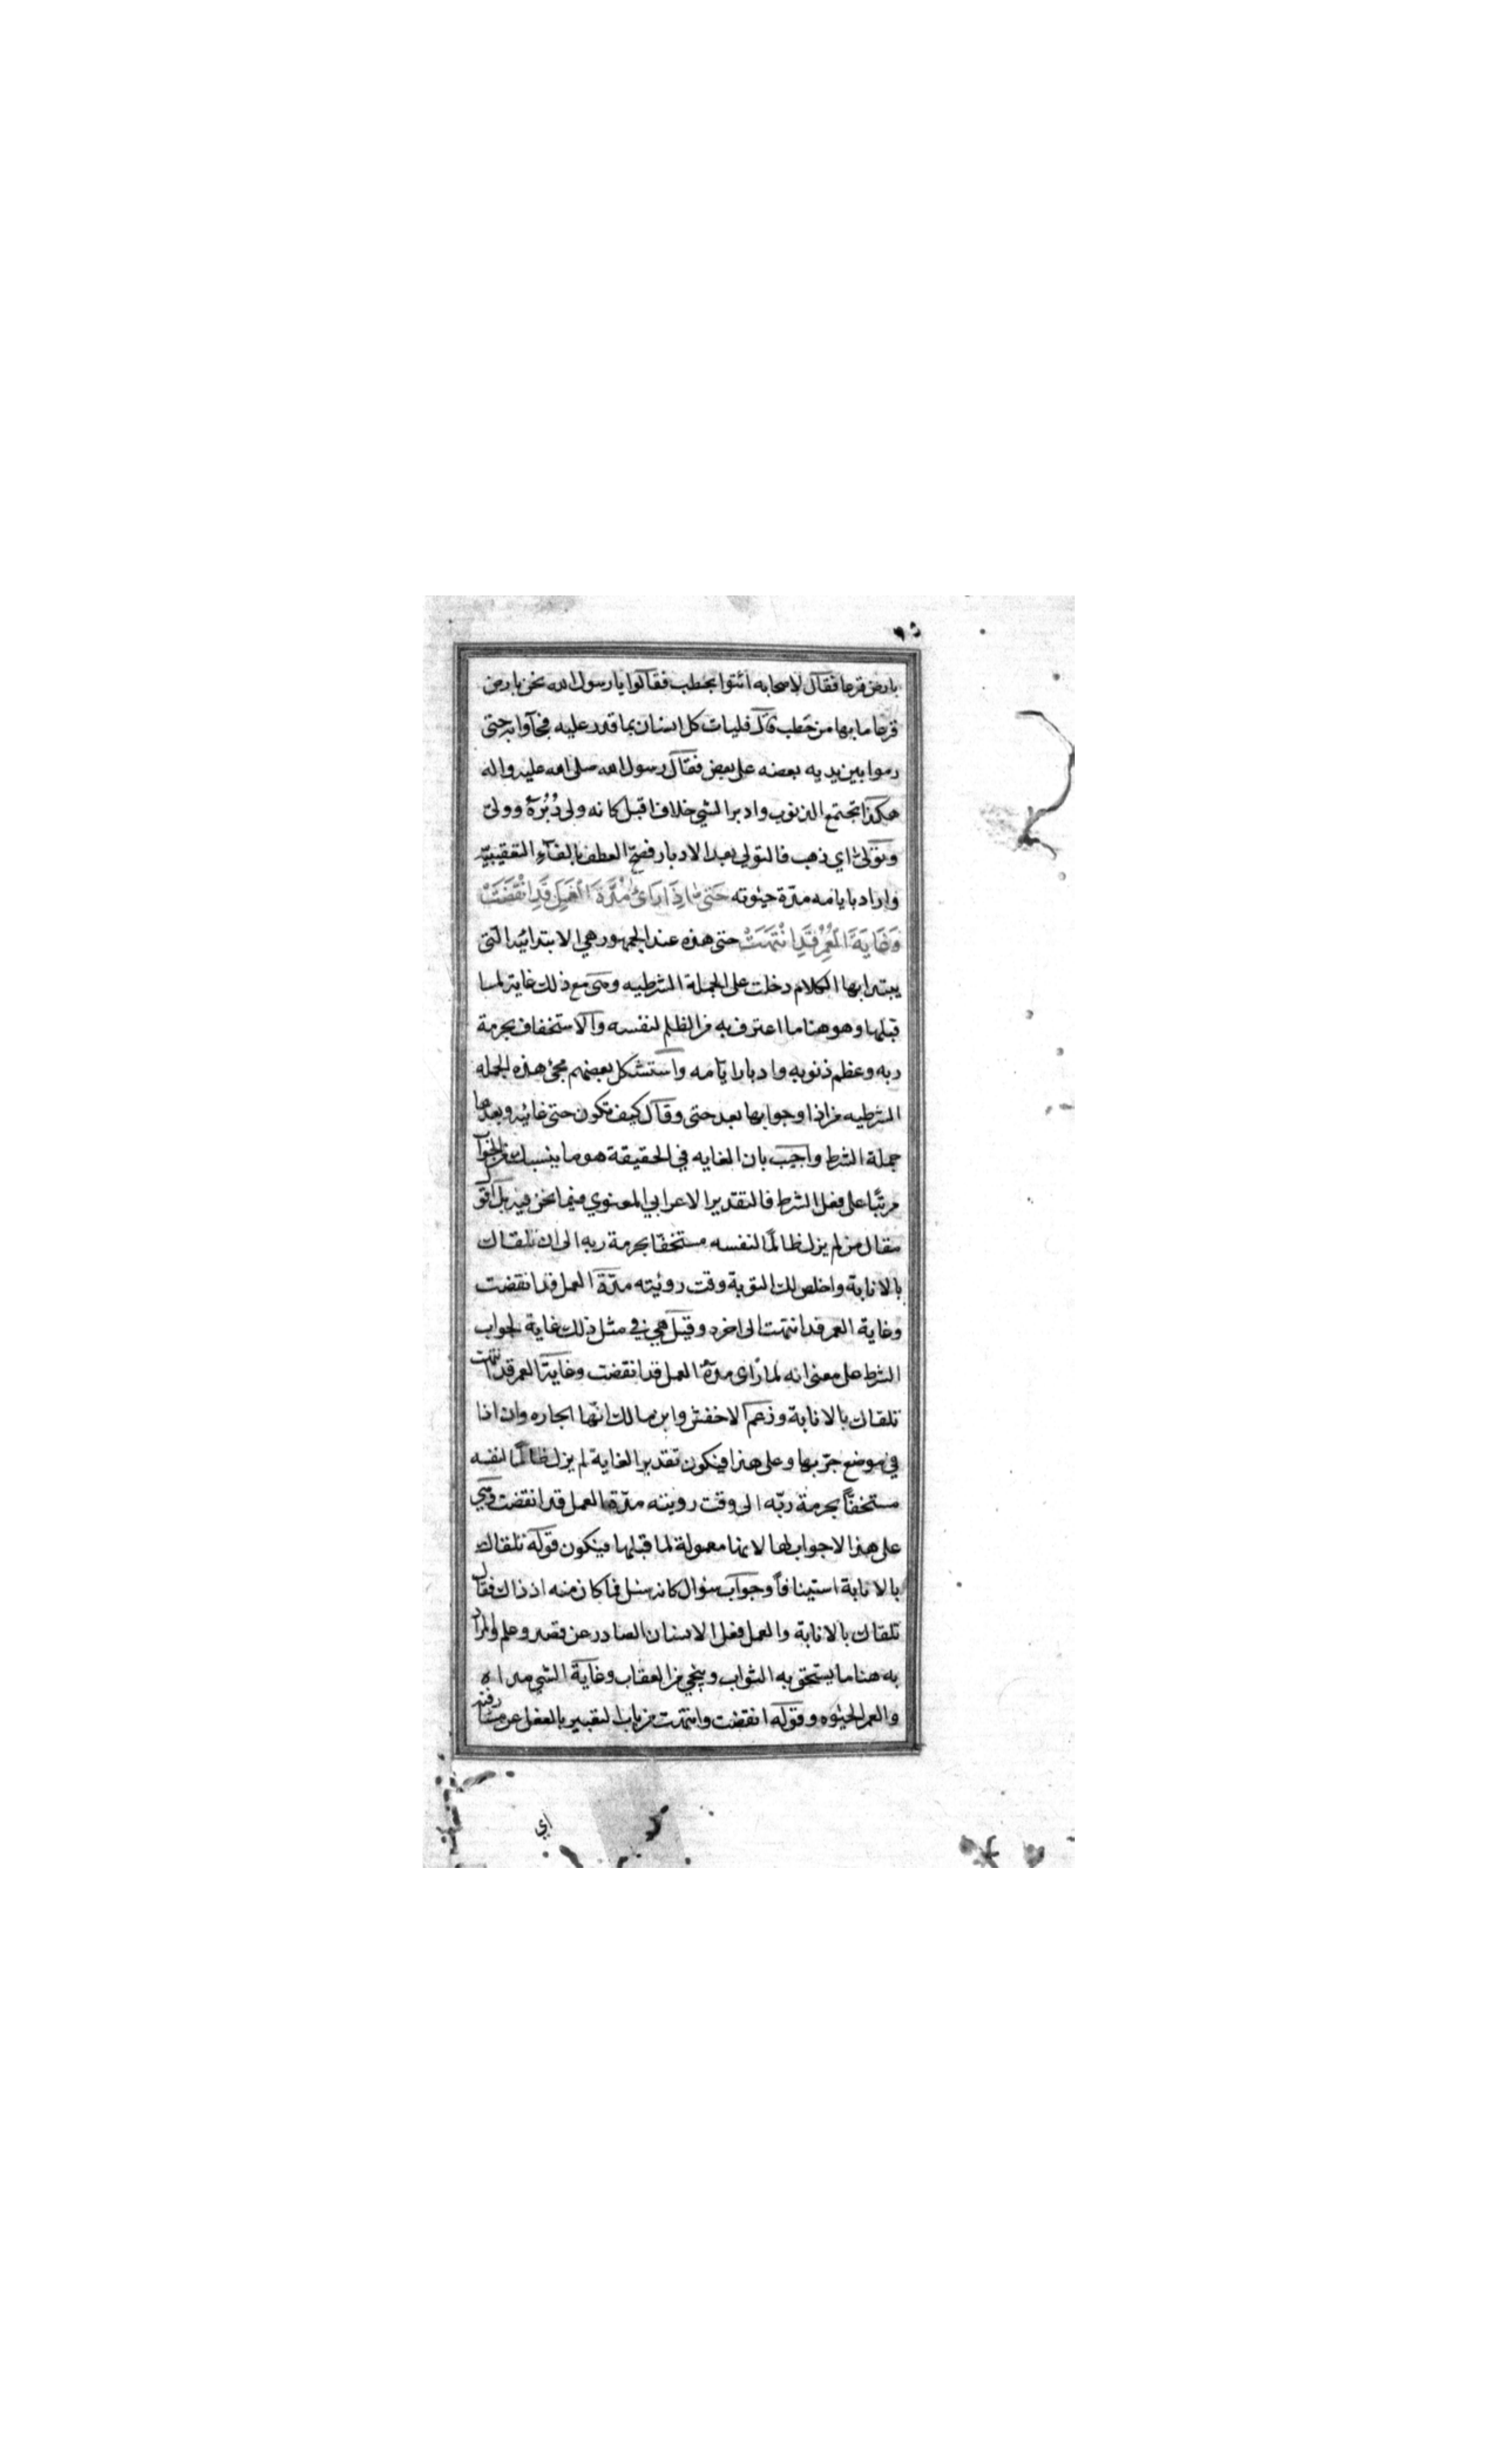 بارض قرعا فقال لاصحابه ائتوا بحطب فقالوا يا رسول الله نحن بارض
قرعا ما بها من حطب قال فليات كل انسان بما قدر عليه فجآوا به حتى
رموا بين يديه بعضه على بعض فقال رسول الله صلى الله عليه واله
هكذا تجتمع الذنوب وادبر الشي خلاف اقبل كانه ولى دُبُرَهُ وولى
وتولى اي ذهب فالتولي بعد الادبار فصح العطف بالفآء التعقيبية
واراد بايامه مدّة حيوته حَتى اِذَا رَاىٰ مُدَّةَ العَمَلِ قَدِ انْقَضَتْ
وَغَايَةَ العُمُرِ قَدِ انْتَهَتْ حتى هذه عند الجمهور هي الابتدائيه التى
يبتدا بها الكلام دخلت على الجملة الشرطيه وهى مع ذلك غاية لما
قبلها وهو هنا ما اعترف به من الظلم لنفسه والاستخفاف بحرمة
ربه وعظم ذنوبه وادبار ايّامه واستشكل بعضهم مجئ هذه الجمله
الشرطيه من اذا وجوابها بعد حتى وقال كيف تكون حتى غائيه وبعدها
جملة الشرط واجيب بان الغايه في الحقيقة هو ما ينسبك من الجواب
مرتبًا على فعل الشرط فالتقدير الاعرابي المعنوي فيما نحن فيه بل اقول
مقال من لم يزل ظالمًا لنفسه مستخفا بحرمة ربه الى ان تلقاك
بالانابة واخلص لك التوبة وقت روئيته مدّة العمل قد انقضت
وغاية العمر قد انتهت الى اخره وقيل هي في مثل ذلك غاية لجواب
الشرط على معنى انه لما راى مدة العمل قد انقضت وغاية العمر قد انتهت
تلقاك بالانابة وزعم الاخفش وابن مالك انّها الجاره وان اذا
في موضع جرّ بها وعلى هذا فيكون تقدير الغاية لم يزل ظالمًا لنفسه
مستخفًّا بحرمة ربّه الى وقت رويته مدّة العمل قد انقضت وهي
على هذا لا جواب لها لانها معمولة لما قبلها فيكون قوله تلقاك
بالانابة استينافًا وجواب سؤال كانه سئل فما كان منه اذ ذاك فقال
تلقاك بالانابة والعمل فعل الانسان الصادر عن قصد وعلم والمراد
به هنا ما يستحق به الثواب وينجي من العقاب وغاية الشي مداه
والعمر الحيوه وقوله انقضت وانتهت من باب التعبير بالفعل عن مشارفته
اي